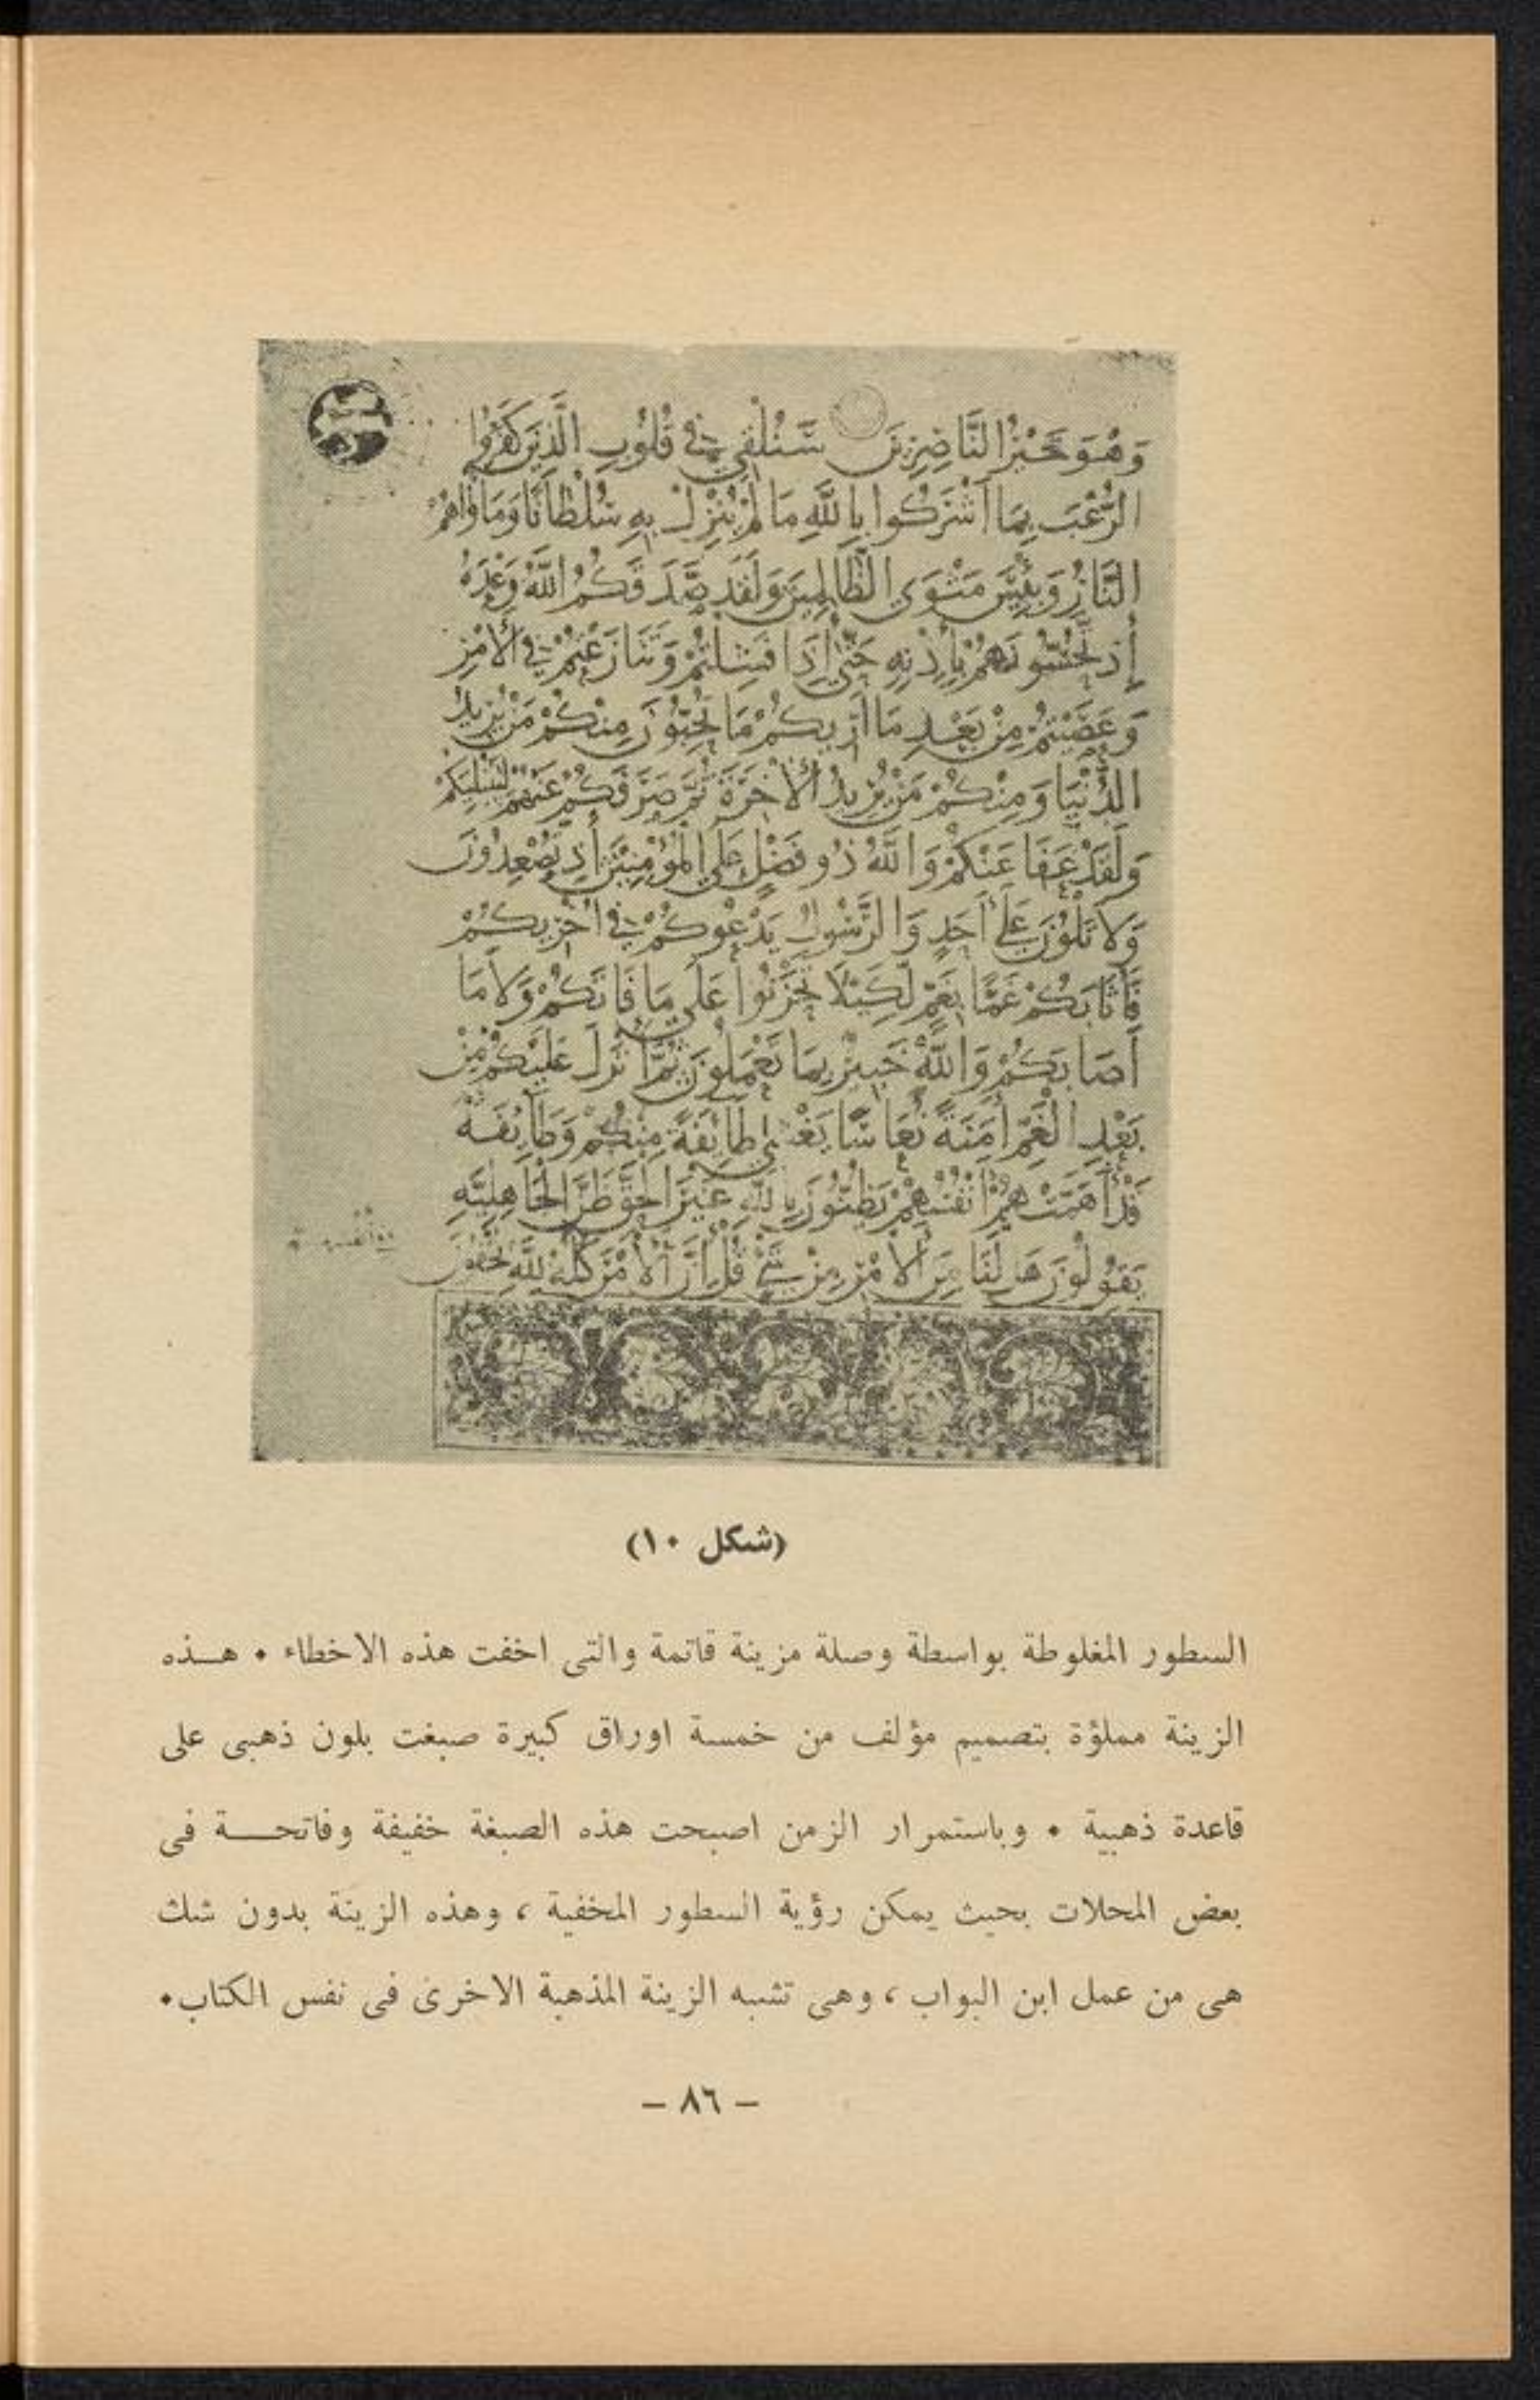 وَهُوَ خَيْرُ النَّاصِرِينَ سَنُلْقِي فِي قُلُوبِ الَّذِينَ كَفَرُوا
الرُّعْبَ بِمَا أَشْرَكُوا بِاللَّهِ مَا لَمْ يُنَزِّلْ بِهِ سُلْطَانًا وَمَأْوَاهُمُ
النَّارُ وَبِئْسَ مَثْوَى الظَّالِمِينَ وَلَقَدْ صَدَقَكُمُ اللَّهُ وَعْدَهُ
إِذْ تَحُسُّونَهُمْ بِإِذْنِهِ حَتَّى إِذَا فَشِلْتُمْ وَتَنَازَعْتُمْ فِي الْأَمْرِ
وَعَصَيْتُمْ مِنْ بَعْدِ مَا أَرَيكُمْ مَا تُحِبُّونَ مِنْكُمْ مَنْ يُرِيدُ
الدُّنْيَا وَمِنْكُمْ مَنْ يُرِيدُ الْأَخِرَةَ ثُمَّ صَرَفَكُمْ عَنْهُمْ لِيَبْتَلِيَكُمْ
وَلَقَدْ عَفَا عَنْكُمْ وَاللَّهُ ذُو فَضْلٍ عَلَى الْمُؤْمِنِينَ إِذْ تُصْعِدُونَ
وَلَا تَلْوُنَ عَلَى أَحَدٍ وَالرَّسُولُ يَدْعُوكُمْ فِي أُخْرَيكُمْ
فَأَثَابَكُمْ غَمًّا بِغَمٍّ لِكَيْلَا تَحْزَنُوا عَلَى مَا فَاتَكُمْ وَلَا مَا
أَصَابَكُمْ وَاللَّهُ خَبِيرٌ بِمَا تَعْمَلُونَ ثُمَّ أَنْزَلَ عَلَيْكُمْ مِنْ
بَعْدِ الْغَمِّ أَمَنَةً نُعَاسًا يَغْشَى طَائِفَةً مِنْكُمْ وَطَائِفَةٌ
قَدْ أَهَمَّتْهُمْ أَنْفُسُهُمْ يَظُنُّونَ بِاللَّهِ غَيْرَ الْحَقِّ ظَنَّ الْجَاهِلِيَّةِ
يَقُولُونَ هَلْ لَنَا مِنَ الْأَمْرِ مِنْ شَيْءٍ قُلْ إِنَّ الْأَمْرَ كُلَّهُ لِلَّهِ يُخْفُونَ
(شكل ١٠)
السطور المغلوطة بواسطة وصلة مزينة قاتمة والتى اخفت هذه الاخطاء ٠ هـــذه
الزينة مملؤة بتصميم مؤلف من خمسة اوراق كبيرة صبغت بلون ذهبى على
قاعدة ذهبية ٠ وباستمرار الزمن اصبحت هذه الصبغة خفيفة وفاتحـــة فى
بعض المحلات بحيث يمكن رؤية السطور المخفية ، وهذه الزينة بدون شك
هى من عمل ابن البواب ، وهى تشبه الزينة المذهبة الاخرى فى نفس الكتاب٠
– ٨٦ –